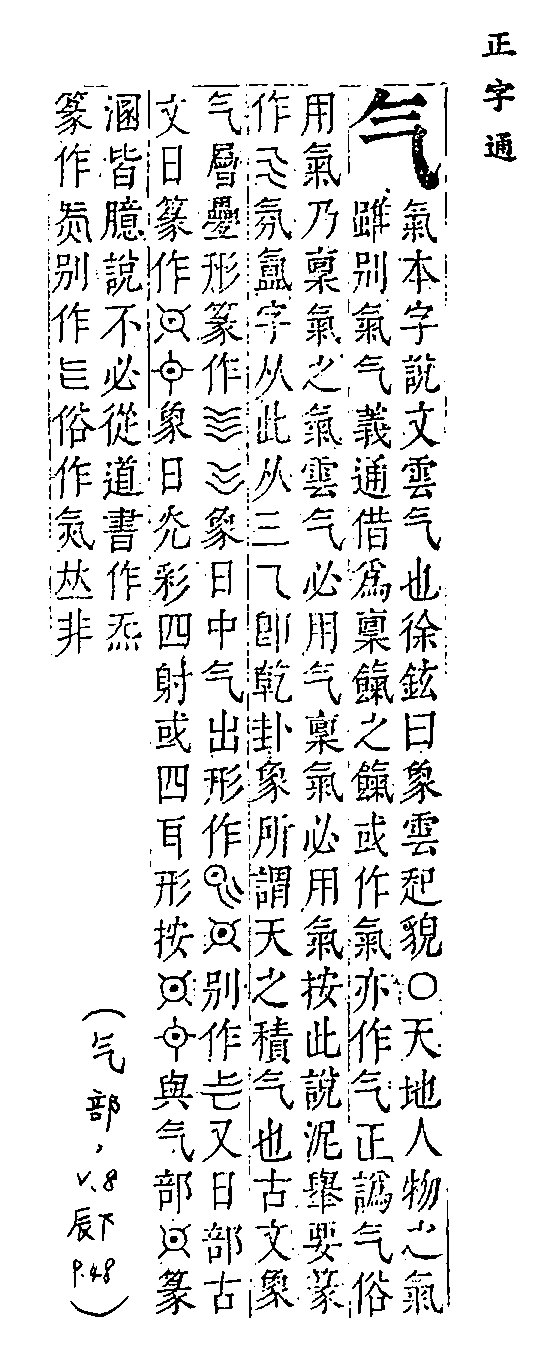 正字通
气
氣本字說文雲气也徐鉉曰象雲起貌○天地人物之氣
雖別氣气義通借爲稟餼之餼或作氣亦作气正譌气俗
用氣乃稟氣之氣雲气必用气稟氣必用氣按此說泥舉要篆
作氛氳字从此从三乁卽乾卦象所謂天之積气也古文象
气層疊形篆作象日中气出形作別作又日部古
文日篆作象日光彩四射或四耳形按與气部篆
溷皆臆說不必從道書作炁
篆作別作俗作𠀤非
(气部, V.8 辰下 P.48)